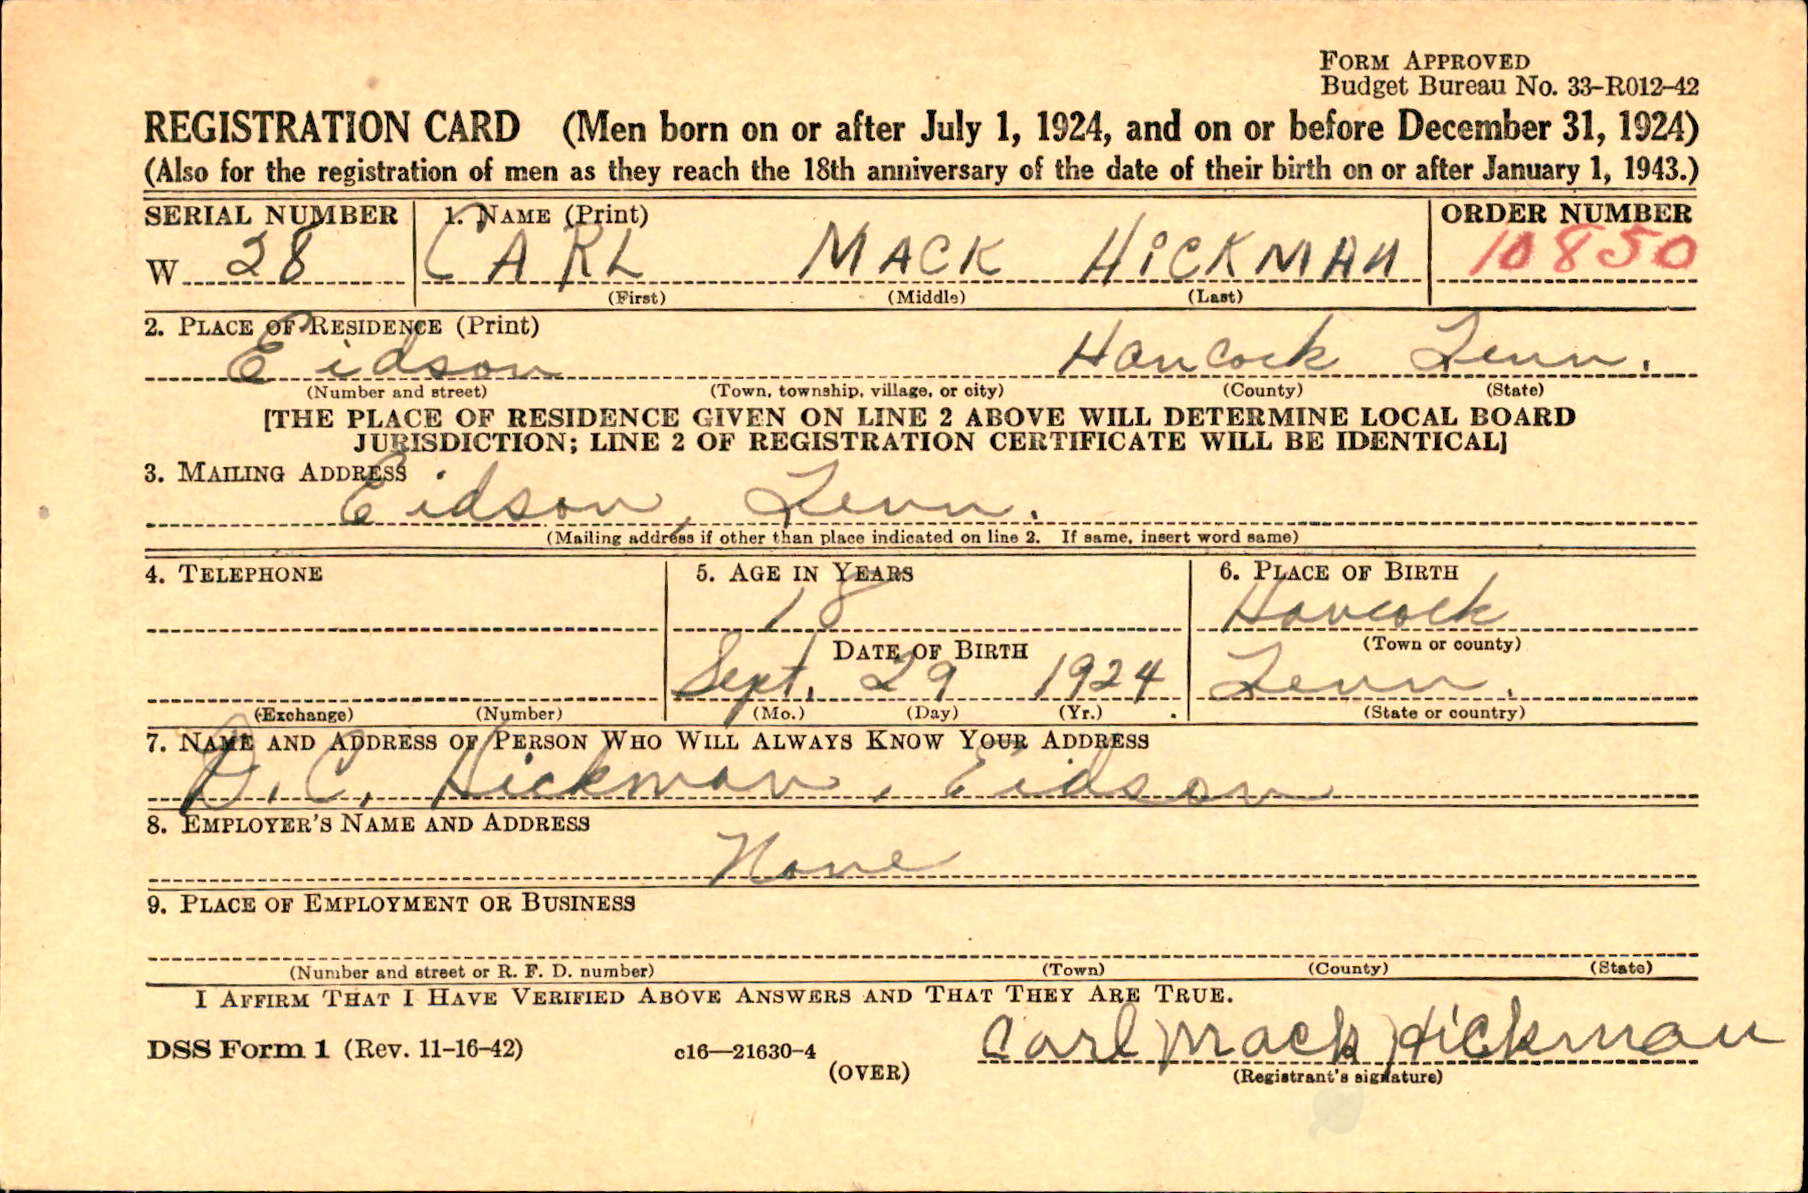 FORM APPROVED
Budget Bureau No. 33-R012-42
REGISTRATION CARD (Men born on or after July 1, 1924, and on or before December 31, 1924)
(Also for the registration of men as they reach the 18th anniversary of the date of their birth on or after January 1, 1943.)
SERIAL NUMBER 1. NAME (Print) ORDER NUMBER
W 28 CARL MACK HICKMAN 10850
(First) (Middle) (Last)
2. PLACE OF RESIDENCE (Print)
Eidson Hancock Tenn.
(Number and street) (Town, township, village, or city) (County) (State)
[THE PLACE OF RESIDENCE GIVEN ON LINE 2 ABOVE WILL DETERMINE LOCAL BOARD
JURISDICTION; LINE 2 OF REGISTRATION CERTIFICATE WILL BE IDENTICAL]
3. MAILING ADDRESS
Eidson, Tenn.
(Mailing address if other than place indicated on line 2. If same, insert word same)
4. TELEPHONE 5. AGE IN YEARS 6. PLACE OF BIRTH
18 Hancock
DATE OF BIRTH (Town or county)
Sept. 29 1924 Tenn.
(Exchange) (Number) (Mo.) (Day) (Yr.) (State or country)
7. NAME AND ADDRESS OF PERSON WHO WILL ALWAYS KNOW YOUR ADDRESS
D. C. Hickman, Eidson
8. EMPLOYER'S NAME AND ADDRESS
None
9. PLACE OF EMPLOYMENT OR BUSINESS
(Number and street or R. F. D. number) (Town) (County) (State)
I AFFIRM THAT I HAVE VERIFIED ABOVE ANSWERS AND THAT THEY ARE TRUE.
DSS Form 1 (Rev. 11-16-42) c16—21630-4 Carl Mack Hickman
(OVER) (Registrant's signature)